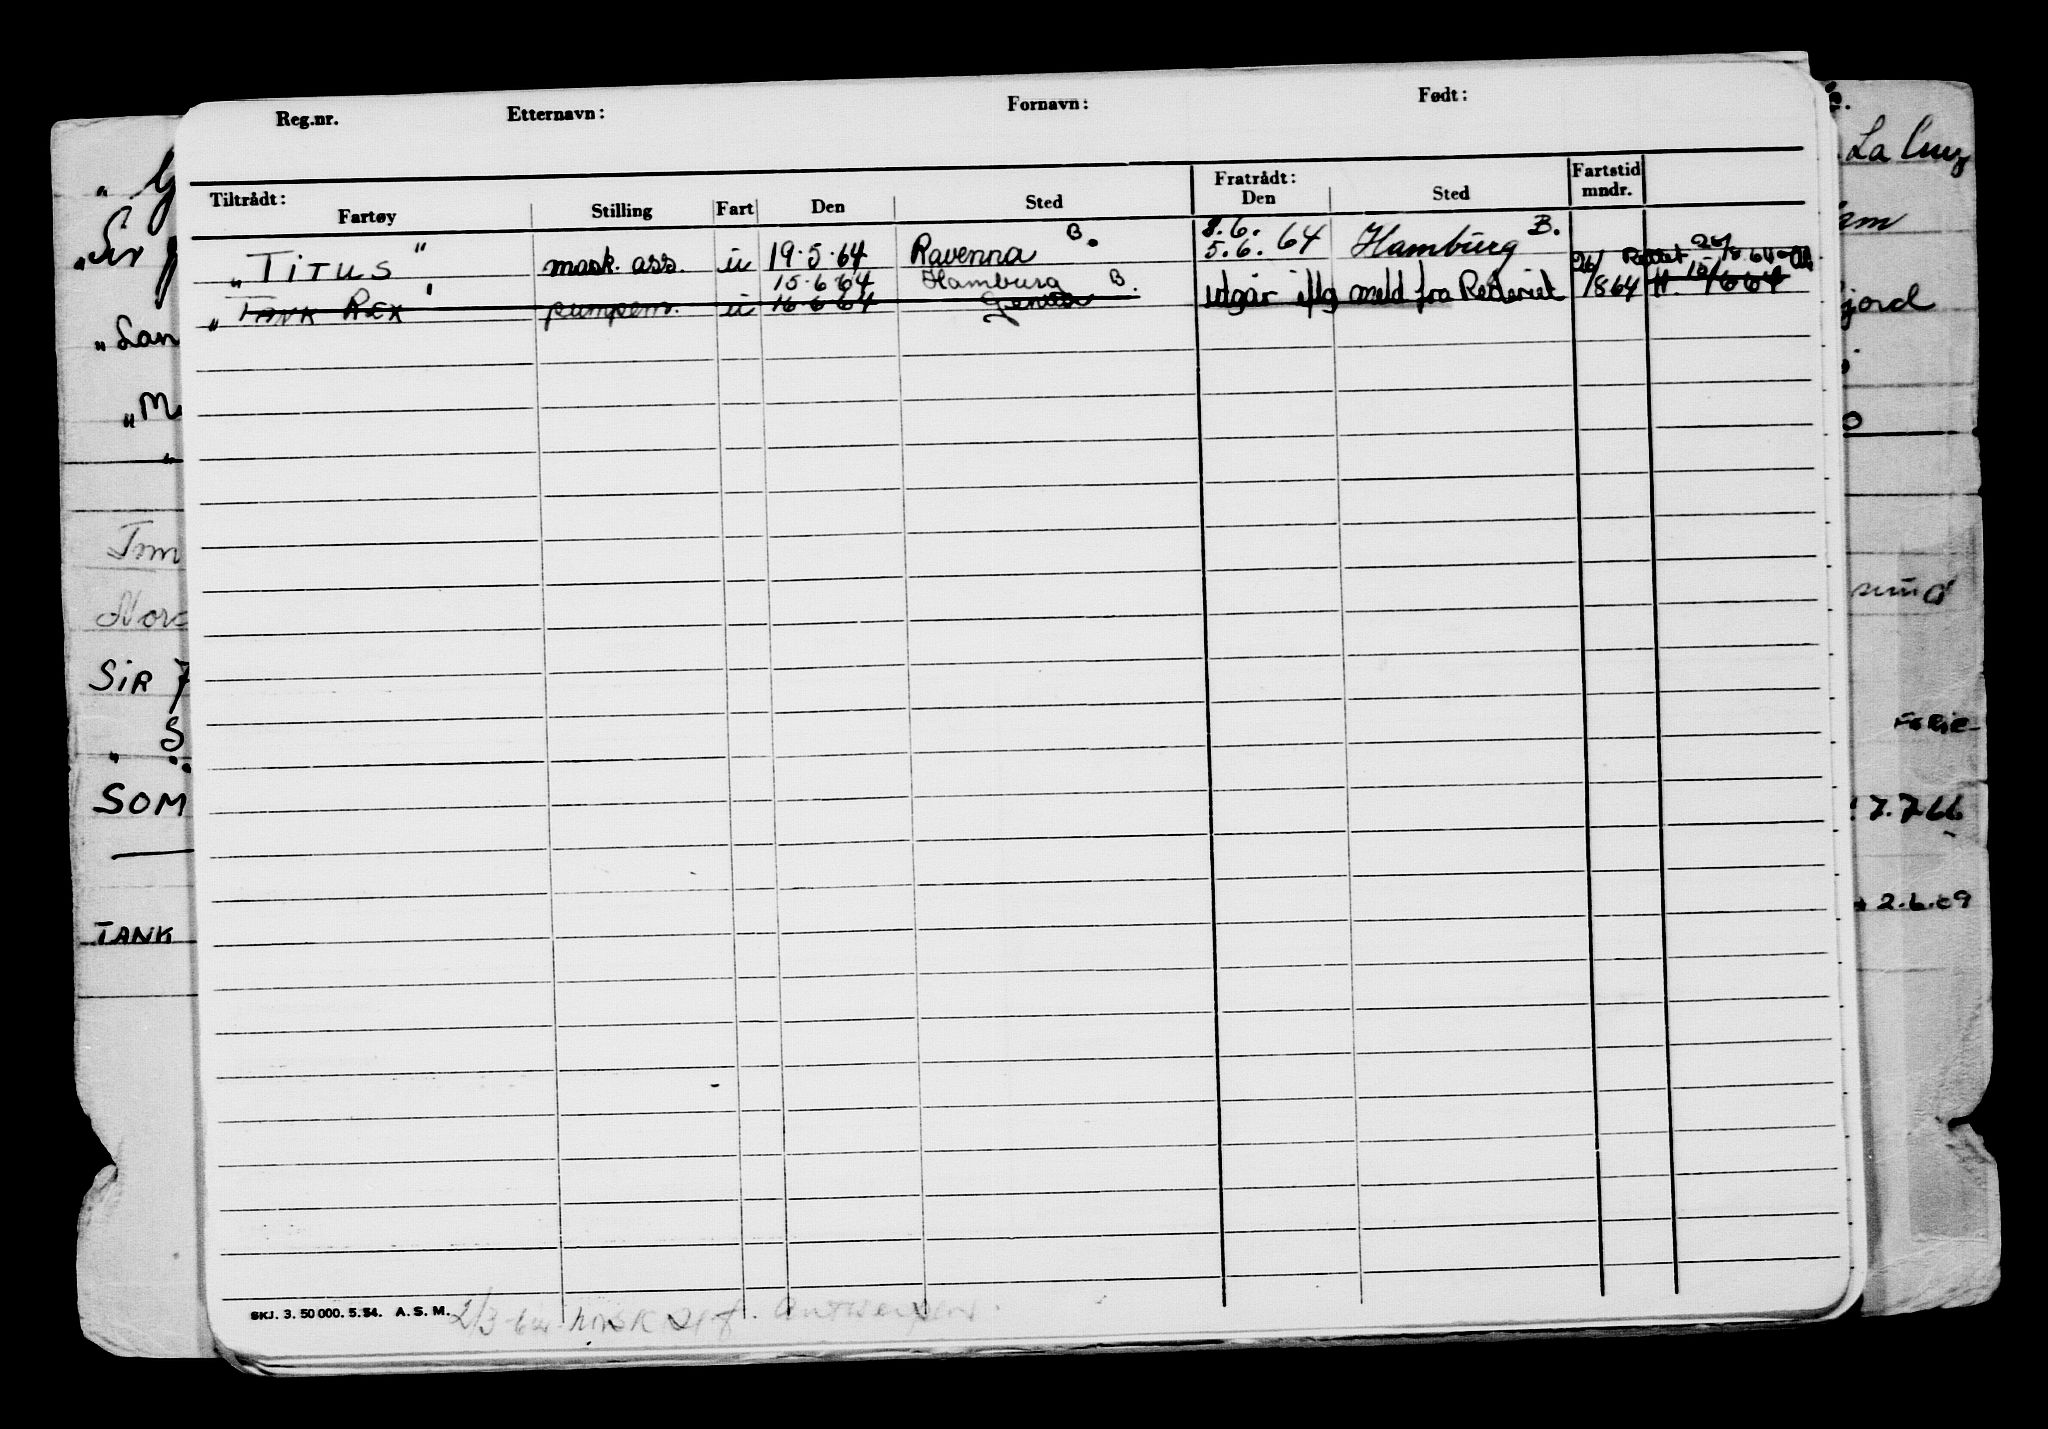 Reg.nr. Etternavn: Fornavn: Født:
Tiltrådt: Fartøy Stilling Fart Den Sted Fratrådt: Den Sted Fartstid mndr.
8.6.
"TITUS" mask. ass. u 19.5.64 Ravenna B. 5.6.64 Hamburg B.
15.6.64 Hamburg B.
"TANK REX" pumpem. u 16.6.64 Genoa utgår iflg meld fra Rederiet 26/8 64
Rettet 26/8 64
SKJ. 3. 50 000. 5. 54. A. S. M.
norsk Antwerpen.
La Cruz
"Sir
"San
jord
"M
Tom
Nord
sund
SIR
S
FERIE-
SOM
7.7.66
TANK
2.6.69